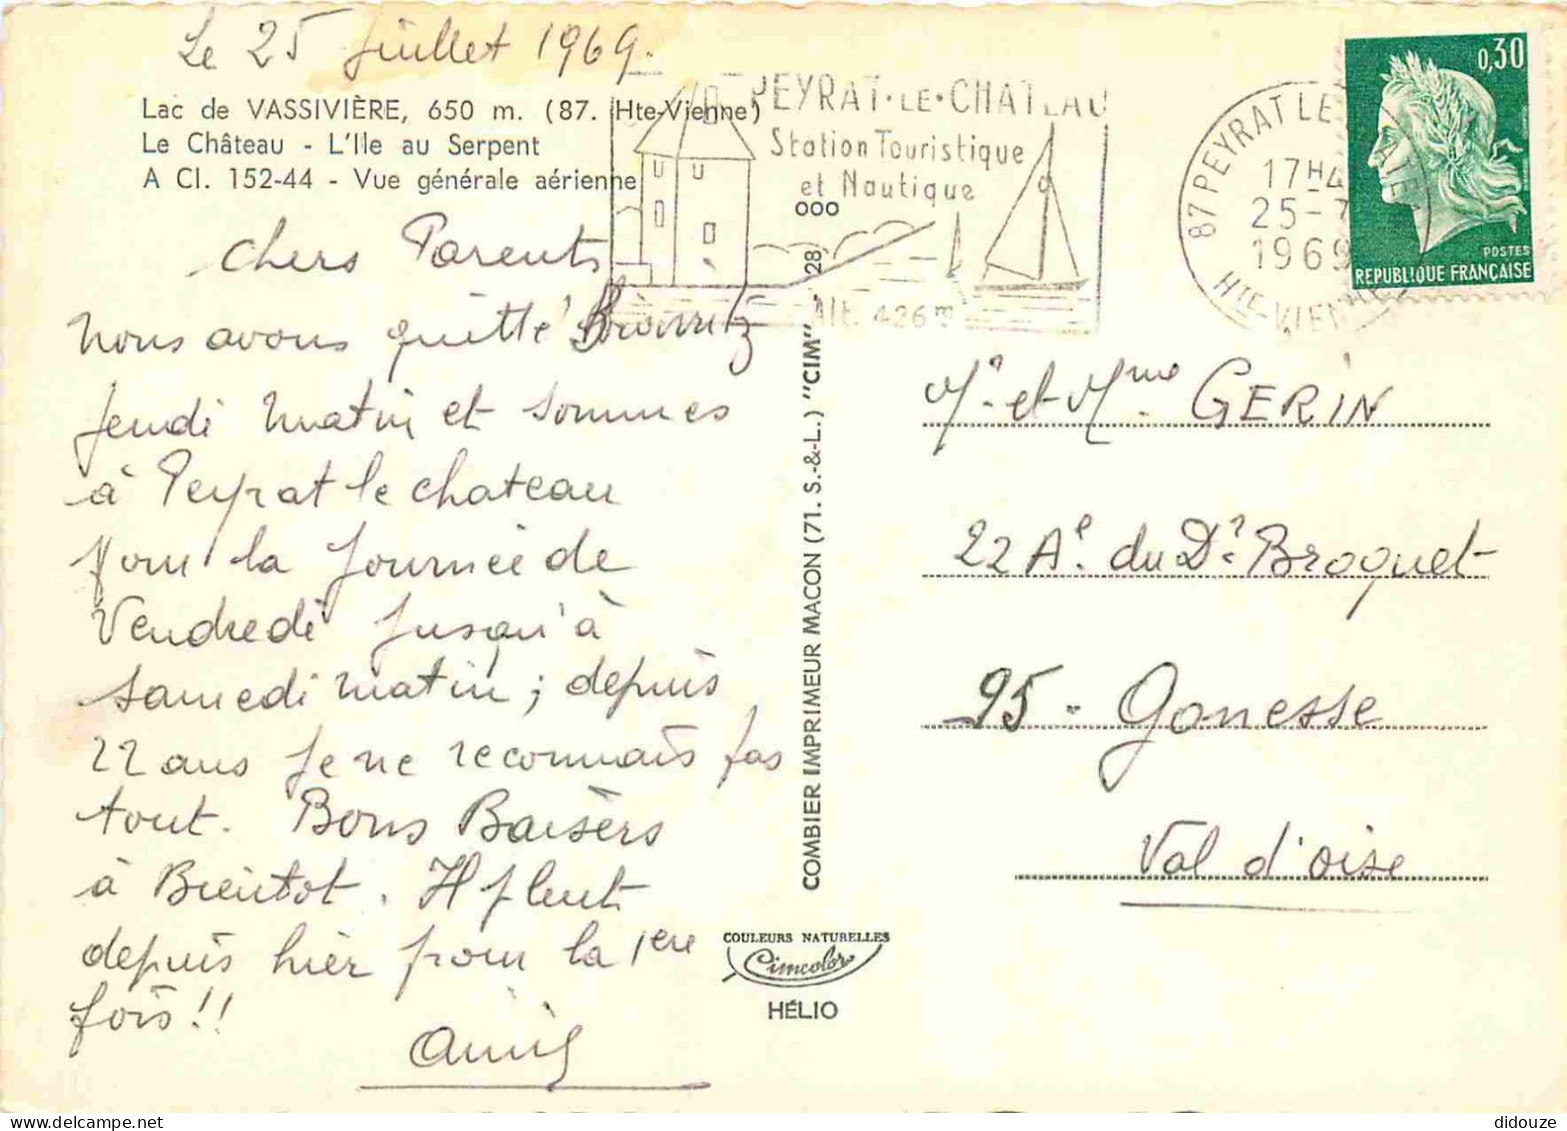 Le 25 Juillet 1969.
Lac de VASSIVIÈRE, 650 m. (87. Hte-Vienne)
Le Château - L'Ile au Serpent
A Cl. 152-44 - Vue générale aérienne
Chers Parents
nous avons quitté Biarritz
Jeudi matin et sommes
à Peyrat le chateau
pour la journée de
Vendredi jusqu'à
samedi matin ; depuis
22 ans je ne reconnais pas
tout. Bons Baisèrs
à Bientot. Il pleut
depuis hier pour la 1ere
fois!!
PEYRAT·LE·CHATEAU
Station Touristique
et Nautique
Alt. 426m
87 PEYRAT LE
17H4
25-7
1969
HTE-VIENNE
0,30
POSTES
REPUBLIQUE FRANÇAISE
ooo
COMBIER IMPRIMEUR MACON (71. S.-&-L.) "CIM" 28
COULEURS NATURELLES
Cimcolor
HÉLIO
Mr. et Mme. GERIN
22 Ae. du Dr. Broquet
95 - Gonesse
Val d'oise
didouze